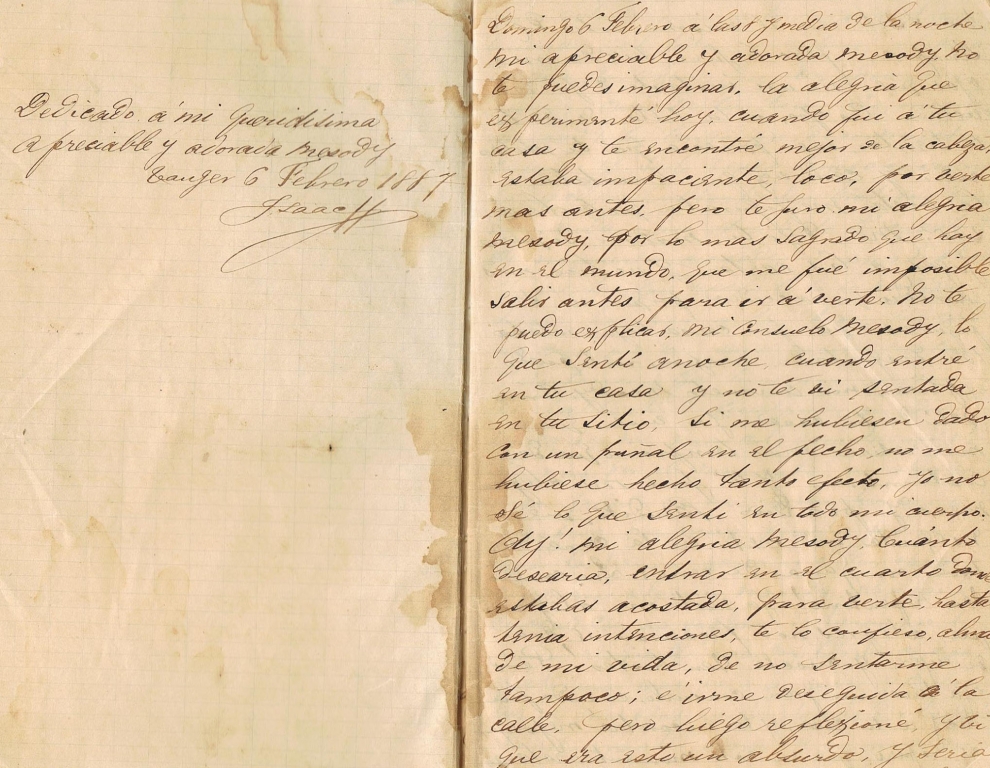 Dedicado á mi queridisima
apreciable y adorada Mesody
Tanger 6 Febrero 1887
Isaac H
Domingo 6 Febrero á las 8 y media de la noche
Mi apreciable y adorada Mesody, No
te puedes imaginar, la alegria que
experimenté hoy, cuando fui á tu
casa y te encontré mejor de la cabeza,
estaba impaciente, loco, por verte
mas antes, pero te juro mi alegria
Mesody, por lo mas sagrado que hay
en el mundo, que me fué imposible
salir antes para ir á verte. No te
puedo explicar, mi consuelo Mesody, lo
que sentí anoche cuando entré
en tu casa y no te vi sentada
en tu sitio, Si me hubiesen dado
con un puñal en el pecho, no me
hubiese hecho tanto efecto, Yo no
sé lo que senti en todo mi cuerpo.
Ay! mi alegria Mesody, Cuánto
desearia, entrar en el cuarto donde
estabas acostada, para verte, hasta
tenia intenciones, te lo confieso, alma
de mi vida, de no sentarme
tampoco; é irme deseguida á la
calle, pero luego reflexioné, y vi
que era esto un absurdo, y seria